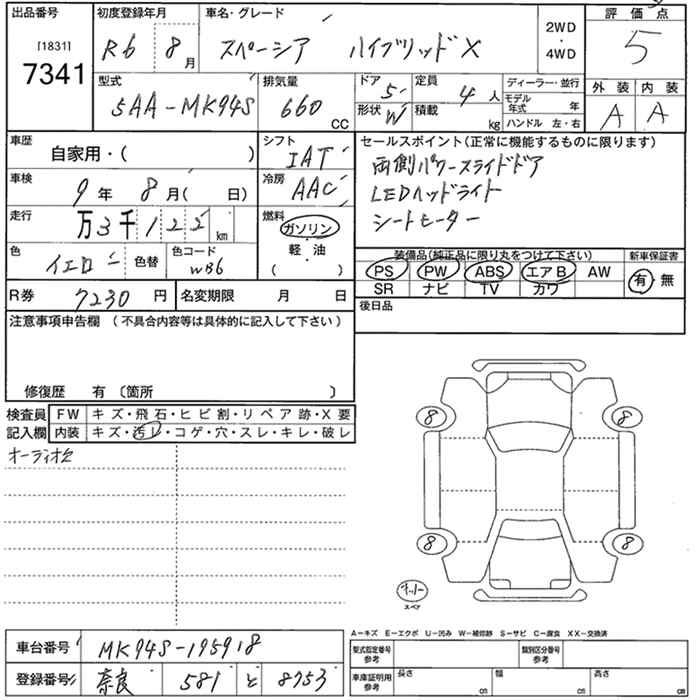 出品番号
[1831]
7341
初度登録年月
R6 8月
車名・グレード
スペーシア ハイブリッドX
2WD
4WD
評価点
5
型式
5AA-MK94S
排気量
660 CC
ドア 5
形状 W
定員 4人
積載 kg
ディーラー・並行
モデル年式 年
ハンドル 左・右
外装 内装
A A
車歴
自家用・( )
シフト
IAT
車検
9年 8月( 日)
冷房
AAC
走行
万3千122km
燃料
ガソリン
軽・油
( )
色
イエロー
色替
色コード
WB6
R券 7230円
名変期限 月 日
セールスポイント(正常に機能するものに限ります)
両側パワースライドドア
LEDヘッドライト
シートヒーター
装備品(純正品に限り丸をつけて下さい)
PS PW ABS エアB AW
SR ナビ TV カワ
新車保証書
有・無
後日品
注意事項申告欄 (不具合内容等は具体的に記入して下さい)
修復歴 有〔箇所 〕
検査員記入欄
FW キズ・飛石・ヒビ割・リペア跡・X要
内装 キズ・汚レ・コゲ・穴・スレ・キレ・破レ
オーディオレ
8 8
8 8
スペア
A-キズ E-エクボ U-凹み W-補修跡 S-サビ C-腐食 XX-交換済
車台番号 MK94S-195918
登録番号 奈良 581 と 8753
型式指定番号 参考
類別区分番号 参考
車庫証明用 参考
長さ cm
幅 cm
高さ cm